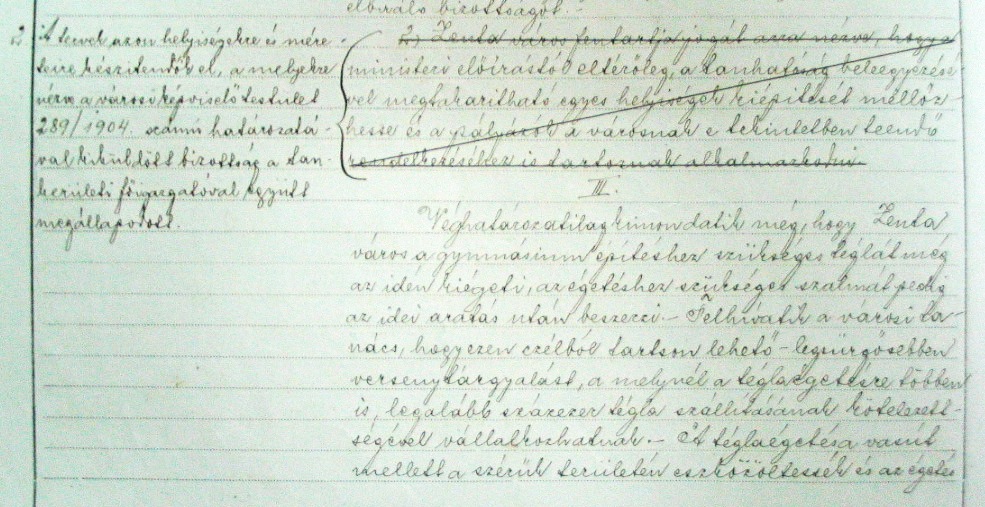 elbiráló bizottságok. -
2. A tervek azon helyiségekre és mére-
teire készitendők el, a melyekre
nézve a városi képviselő testület
289/1904. számú határozatá-
val kiküldött bizottság a tan-
kerületi főigazgatóval együtt
megállapodott.
2) Zenta város fentartja jogát arra nézve, hogy a
ministeri előirástól eltérőleg, a tanhatóság beleegyezésé
vel megtakaritható egyes helyiségek kiépitését mellőz-
hesse és a pályázók a városnak e tekintetben teendő
rendelkezéseihez is tartoznak alkalmazkodni.
III.
Véghatározatilag kimondatik még, hogy Zenta
város a gymnásium épitéshez szükséges téglát még
az idén kiégeti, az égetéshez szükséges szalmát pedig
az idei aratás után beszerzi. - Felhivatik a városi ta-
nács, hogy ezen czélból tartson lehető-legsürgősebben
versenytárgyalást, a melynél a téglaégetésre többen
is, legalább százezer tégla szállitásának kötelezett-
ségével vállalkozhatnak. - A téglaégetés a vasút
mellett a szérük területén eszközöltessék és az égetés